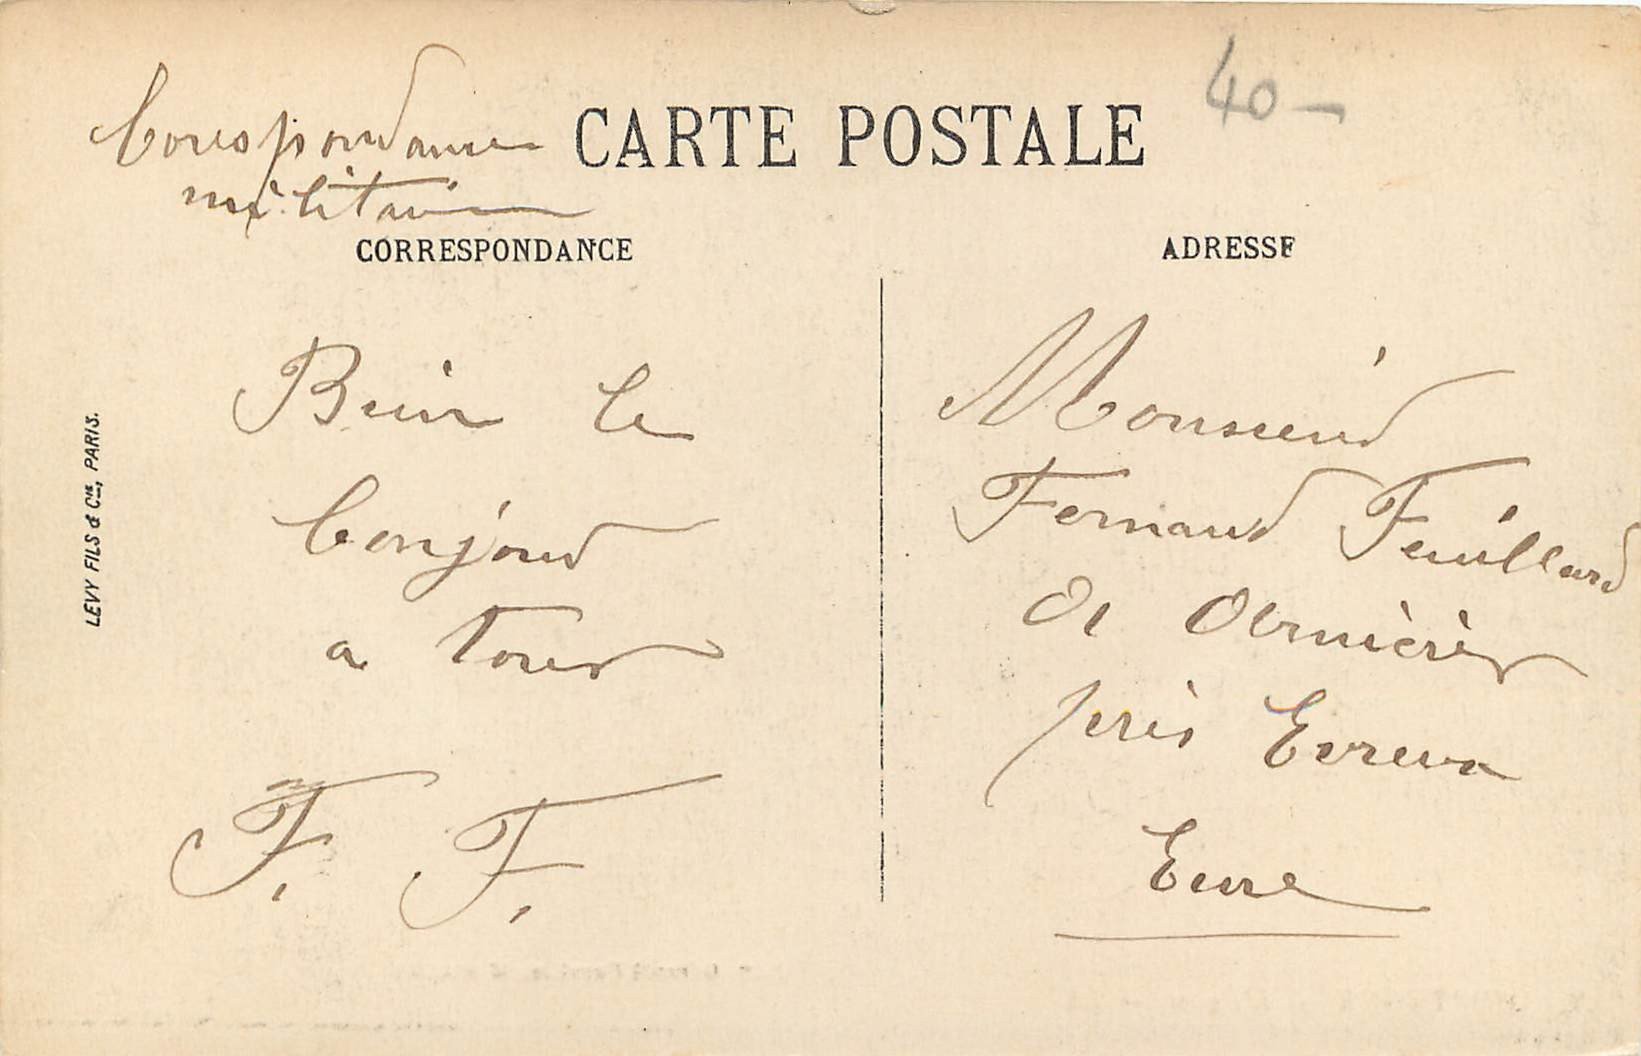 40 -
Corespondance
militaire
CARTE POSTALE
CORRESPONDANCE
ADRESSE
LEVY FILS & Cie, PARIS.
Bien le
bonjour
a tous
F. F.
Monsieur
Fernand Feuillard
A
près Evreux
Eure